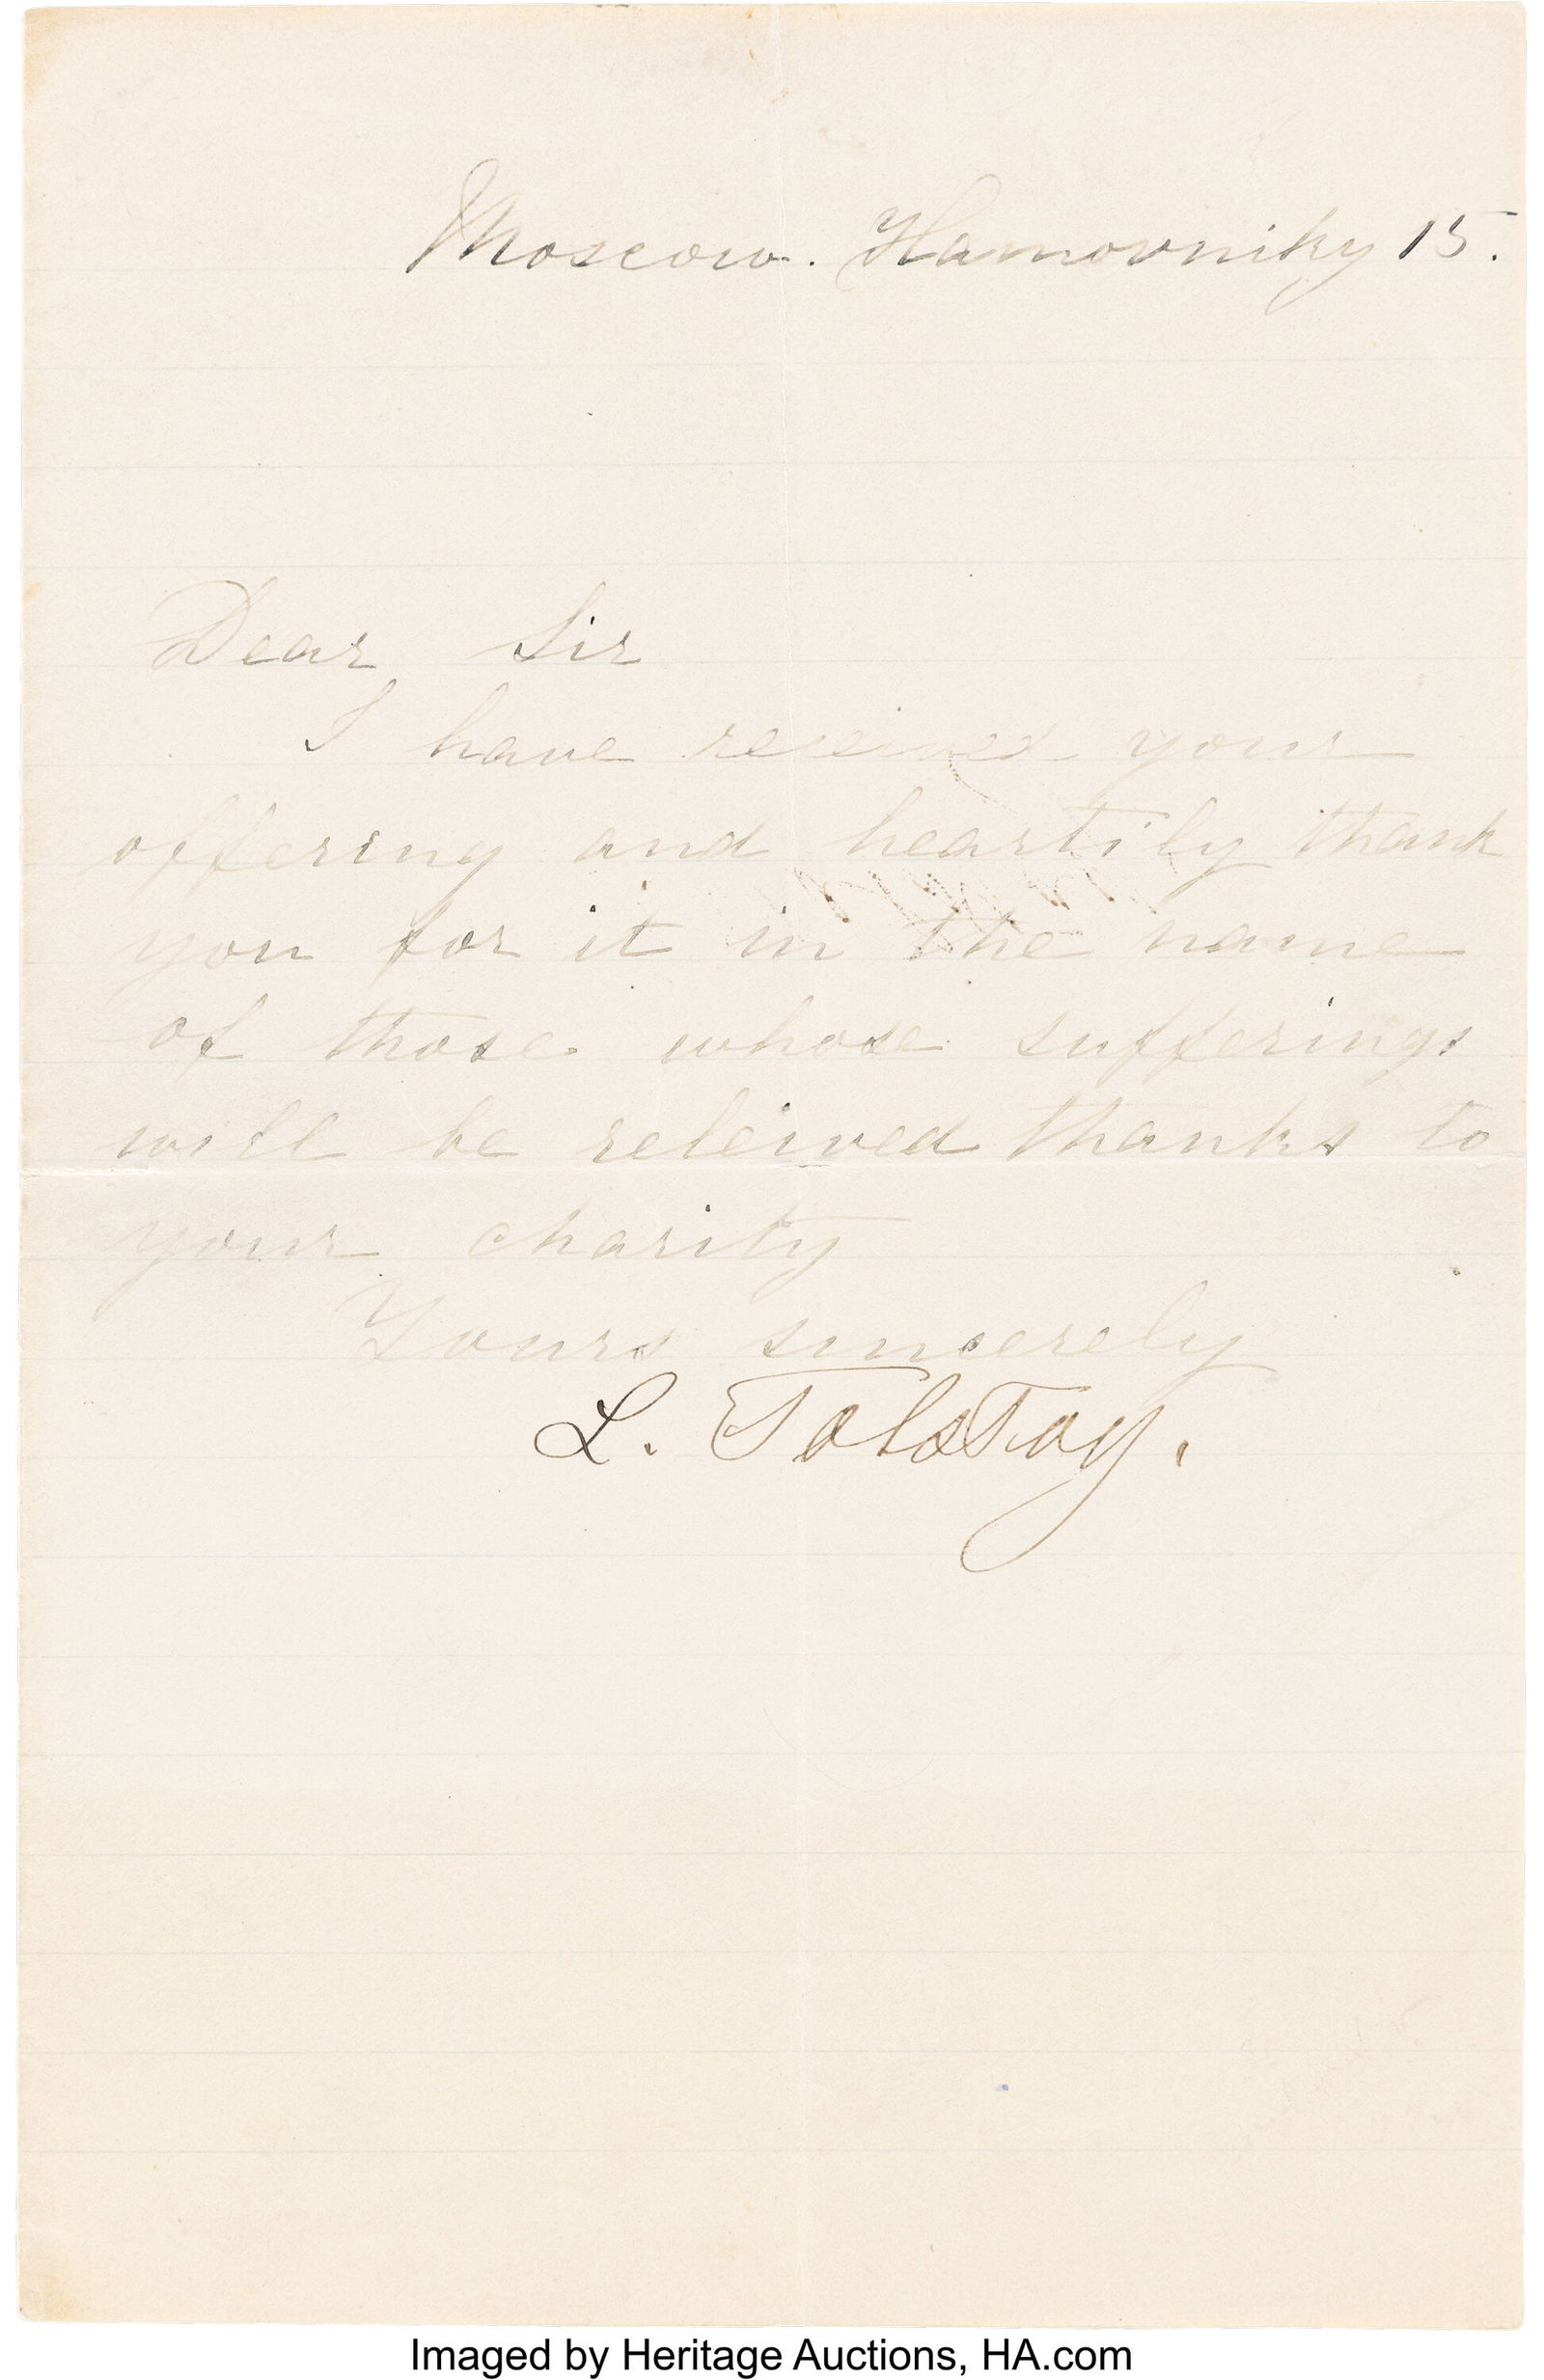 Moscow. Hamovniky 15.
Dear Sir
I have received your
offering and heartily thank
you for it in the name
of those whose sufferings
will be releived thanks to
your charity
Yours sincerely
L. Tolstoy.
Imaged by Heritage Auctions, HA.com